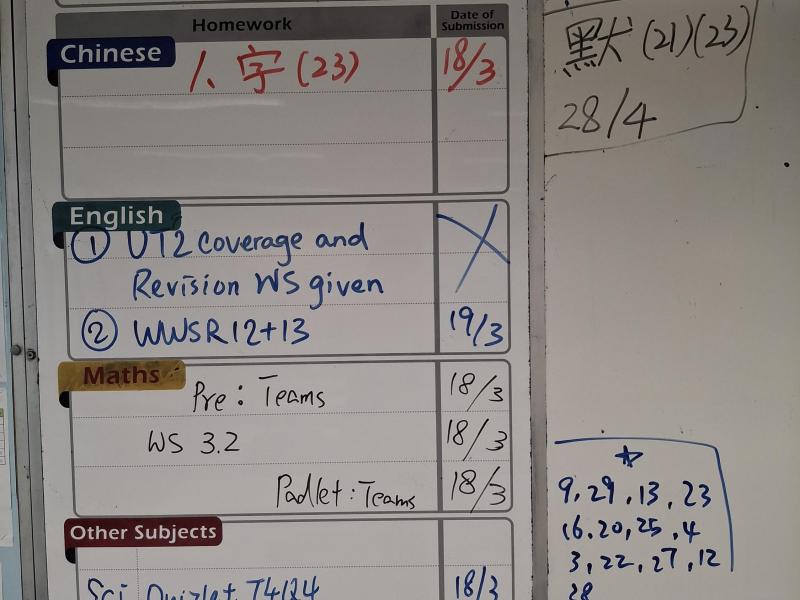 Homework
Date of Submission
Chinese
1. 字(23)
18/3
English
① UT2 coverage and
Revision WS given
② WWSR12+13
19/3
Maths
Pre: Teams
18/3
WS 3.2
18/3
Padlet: Teams
18/3
Other Subjects
Sci Quizlet T4Q4
18/3
默(21)(23)
28/4
9, 29, 13, 23
16, 20, 25, 4
3, 22, 27, 12
28